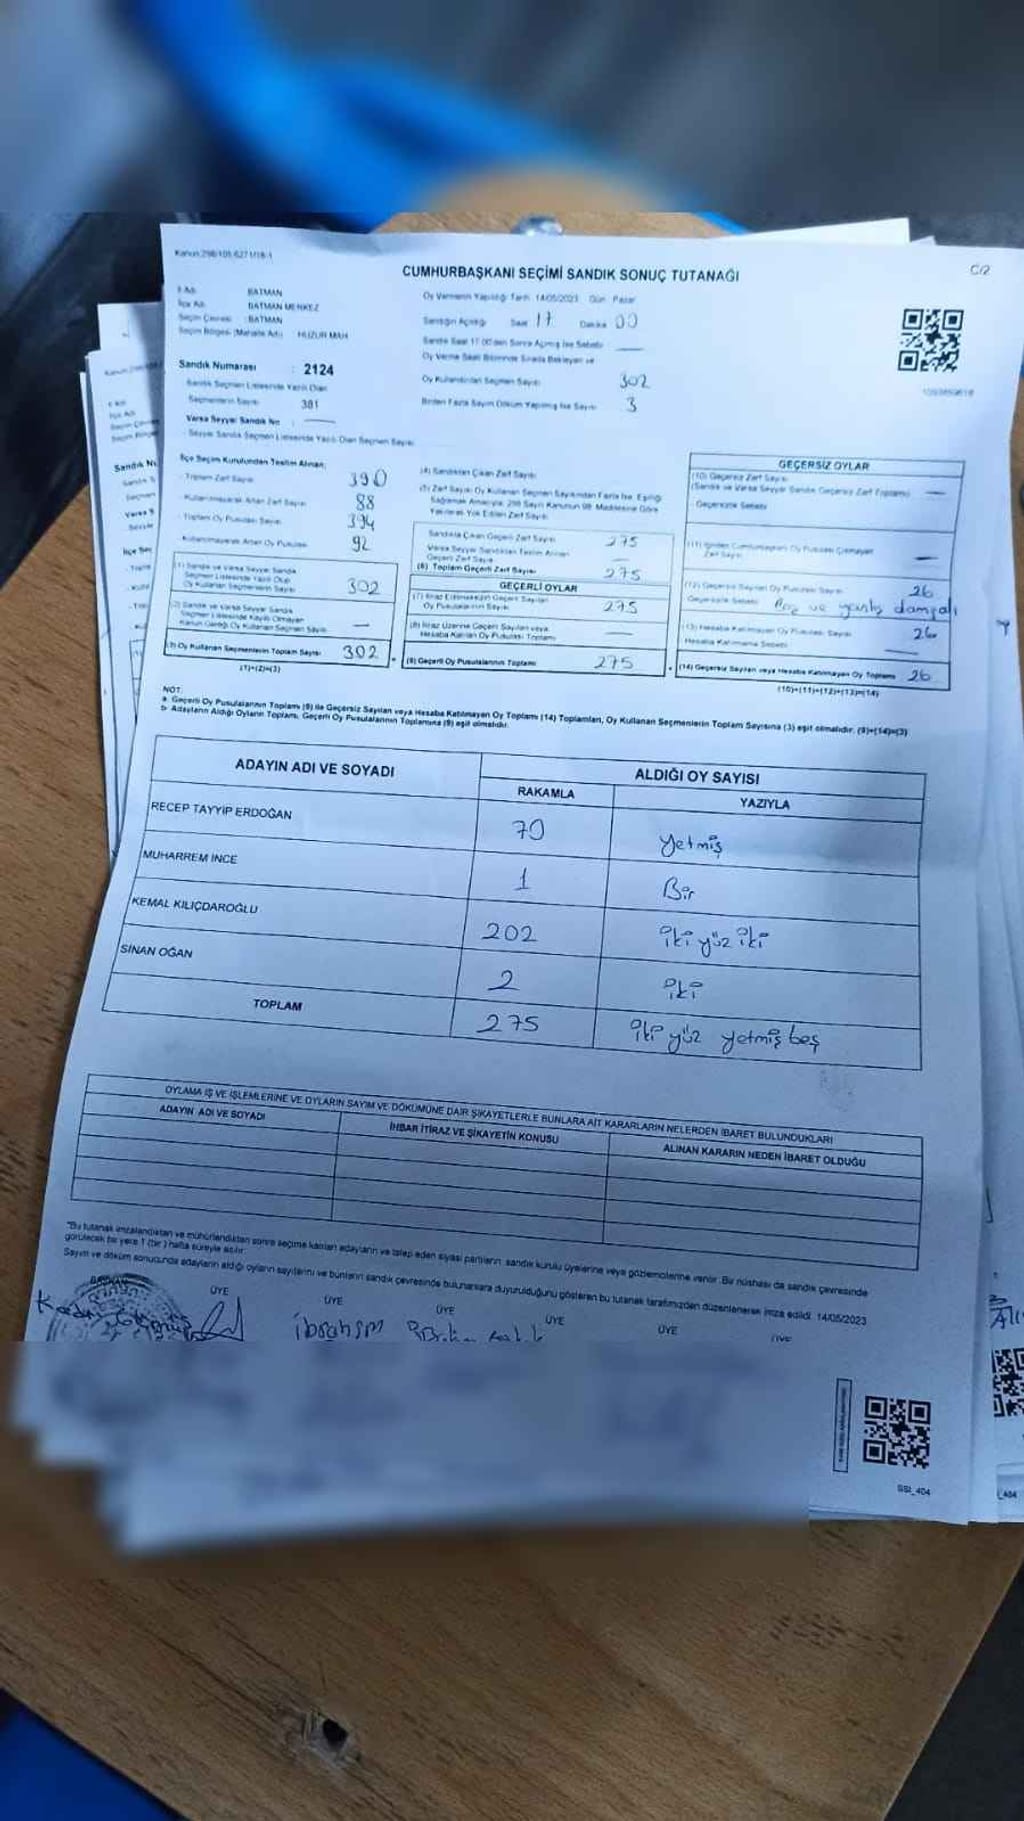 Kanun:298/105 6271/18-1
C/2
CUMHURBAŞKANI SEÇİMİ SANDIK SONUÇ TUTANAĞI
İl Adı : BATMAN
İlçe Adı : BATMAN MERKEZ
Seçim Çevresi : BATMAN
Seçim Bölgesi (Mahalle Adı) : HUZUR MAH
Oy Vermenin Yapıldığı Tarih 14/05/2023 Gün Pazar
Sandığın Açıldığı Saat 17 Dakika 00
Sandık Saat 17.00'den Sonra Açılmış İse Sebebi
Oy Verme Saati Bitiminde Sırada Bekleyen ve
Oy Kullandırılan Seçmen Sayısı 302
Birden Fazla Sayım Döküm Yapılmış İse Sayısı 3
Sandık Numarası : 2124
Sandık Seçmen Listesinde Yazılı Olan
Seçmenlerin Sayısı : 381
Varsa Seyyar Sandık No :
Seyyar Sandık Seçmen Listesinde Yazılı Olan Seçmen Sayısı
İlçe Seçim Kurulundan Teslim Alınan;
- Toplam Zarf Sayısı 390
- Kullanılmayarak Artan Zarf Sayısı 88
- Toplam Oy Pusulası Sayısı 394
- Kullanılmayarak Artan Oy Pusulası 92
(1) Sandık ve Varsa Seyyar Sandık
Seçmen Listesinde Yazılı Olup
Oy Kullanan Seçmenlerin Sayısı 302
(2) Sandık ve Varsa Seyyar Sandık
Seçmen Listesinde Kayıtlı Olmayan
Kanun Gereği Oy Kullanan Seçmen Sayısı
(3) Oy Kullanan Seçmenlerin Toplam Sayısı 302
(1)+(2)=(3)
(4) Sandıktan Çıkan Zarf Sayısı
(5) Zarf Sayısı Oy Kullanan Seçmen Sayısından Fazla İse, Eşitliği
Sağlamak Amacıyla, 298 Sayılı Kanunun 98. Maddesine Göre
Yakılarak Yok Edilen Zarf Sayısı
Sandıkta Çıkan Geçerli Zarf Sayısı 275
Varsa Seyyar Sandıktan Teslim Alınan
Geçerli Zarf Sayısı
(6) Toplam Geçerli Zarf Sayısı 275
GEÇERLİ OYLAR
(7) İtiraz Edilmeksizin Geçerli Sayılan
Oy Pusulalarının Sayısı 275
(8) İtiraz Üzerine Geçerli Sayılan veya
Hesaba Katılan Oy Pusulası Toplamı
(9) Geçerli Oy Pusulalarının Toplamı 275
GEÇERSİZ OYLAR
(10) Geçersiz Zarf Sayısı
(Sandık ve Varsa Seyyar Sandık Geçersiz Zarf Toplamı)
Geçersizlik Sebebi
(11) İçinden Cumhurbaşkanı Oy Pusulası Çıkmayan
Zarf Sayısı
(12) Geçersiz Sayılan Oy Pusulası Sayısı 26
Geçersizlik Sebebi Boz ve yanlış damgalı
(13) Hesaba Katılmayan Oy Pusulası Sayısı 26
Hesaba Katılmama Sebebi
(14) Geçersiz Sayılan veya Hesaba Katılmayan Oy Toplamı 26
(10)+(11)+(12)+(13)=(14)
NOT:
a- Geçerli Oy Pusulalarının Toplamı (9) ile Geçersiz Sayılan veya Hesaba Katılmayan Oy Toplamı (14) Toplamları, Oy Kullanan Seçmenlerin Toplam Sayısına (3) eşit olmalıdır. (9)+(14)=(3)
b- Adayların Aldığı Oyların Toplamı, Geçerli Oy Pusulalarının Toplamına (9) eşit olmalıdır.
ADAYIN ADI VE SOYADI
ALDIĞI OY SAYISI
RAKAMLA YAZIYLA
RECEP TAYYİP ERDOĞAN 70 Yetmiş
MUHARREM İNCE 1 Bir
KEMAL KILIÇDAROĞLU 202 iki yüz iki
SİNAN OĞAN 2 iki
TOPLAM 275 iki yüz yetmiş beş
OYLAMA İŞ VE İŞLEMLERİNE VE OYLARIN SAYIM VE DÖKÜMÜNE DAİR ŞİKAYETLERLE BUNLARA AİT KARARLARIN NELERDEN İBARET BULUNDUKLARI
ADAYIN ADI VE SOYADI
İHBAR İTİRAZ VE ŞİKAYETİN KONUSU
ALINAN KARARIN NEDEN İBARET OLDUĞU
"Bu tutanak imzalandıktan ve mühürlendikten sonra seçime katılan adayların ve talep eden siyasi partilerin sandık kurulu üyelerine veya gözlemcilerine verilir. Bu nüshası da sandık çevresinde
görülecek bir yere 1 (bir) hafta süreyle asılır.
Sayım ve döküm sonucunda adayların aldığı oyların sayılarını ve bunların sandık çevresinde bulunanlara duyurulduğunu gösteren bu tutanak tarafımızdan düzenlenerek imza edildi. 14/05/2023
BAŞKAN ÜYE ÜYE ÜYE ÜYE ÜYE ÜYE
ibrahim
SSI_404